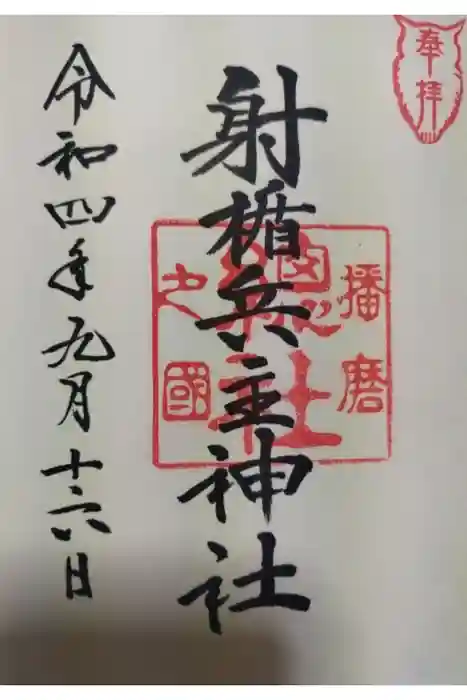 奉拝
射楯兵主神社
播磨
總社
之國
令和四年九月十六日